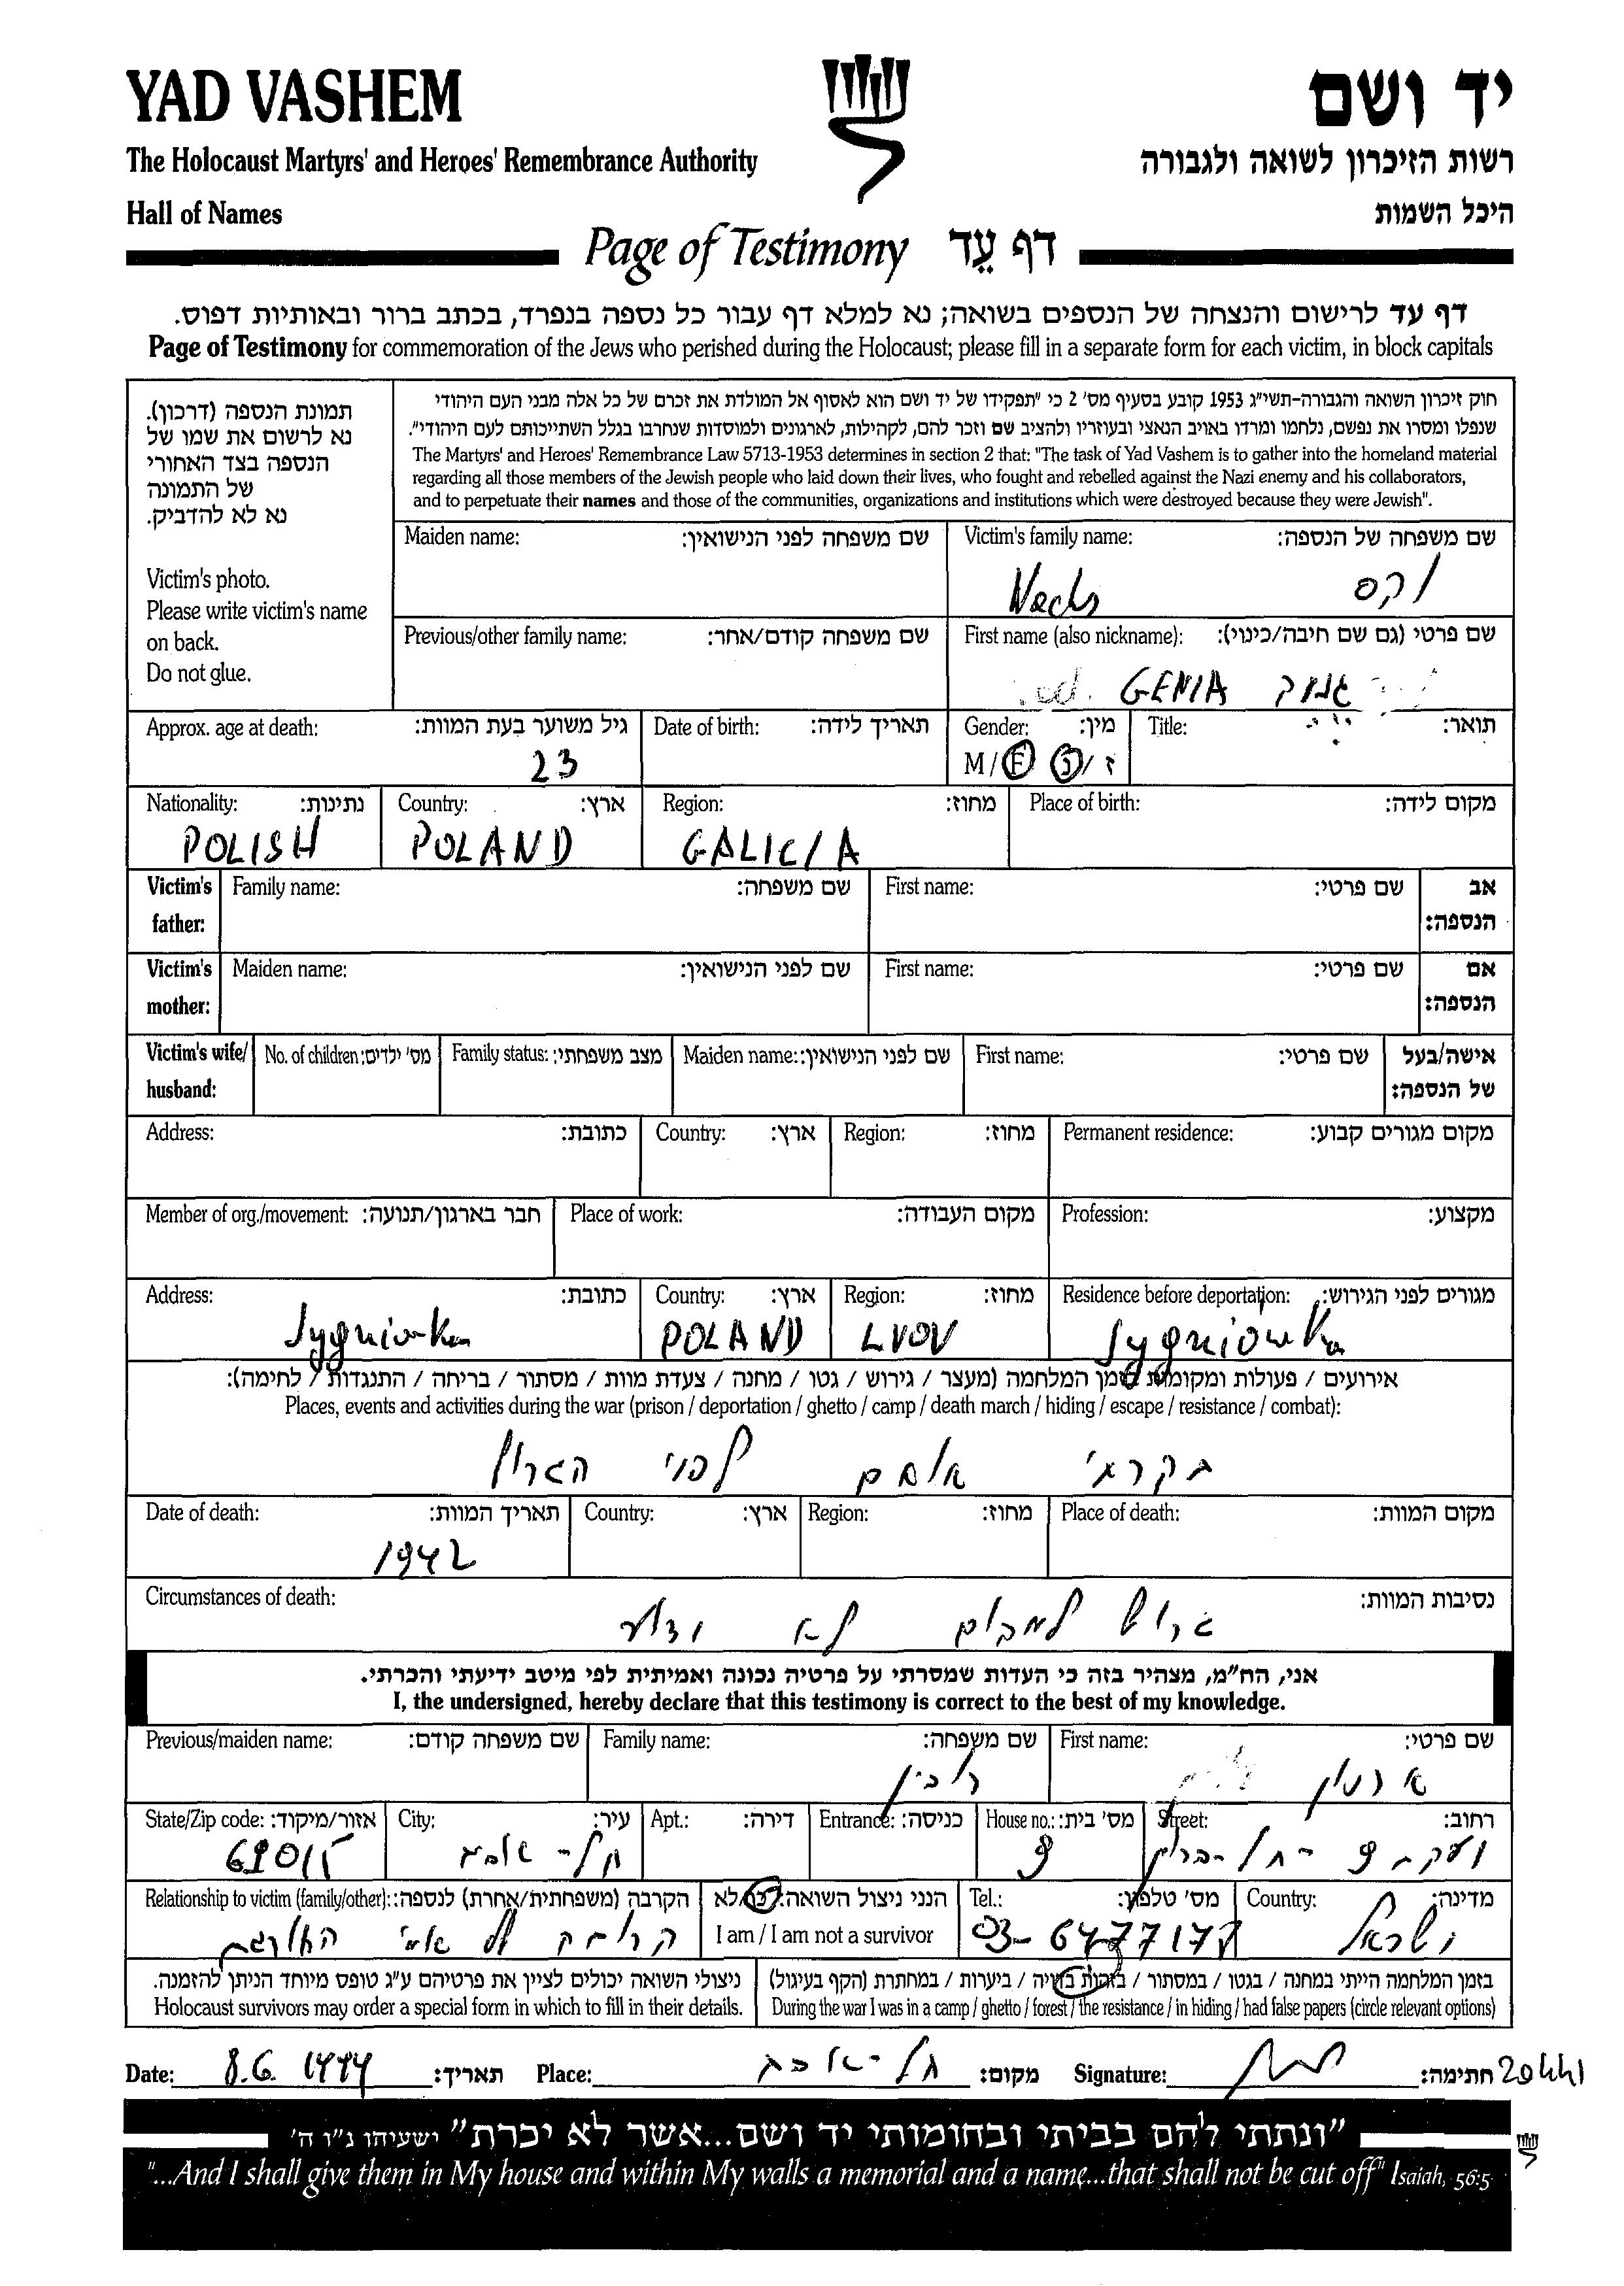 YAD VASHEM
יד ושם
The Holocaust Martyrs' and Heroes' Remembrance Authority
רשות הזיכרון לשואה ולגבורה
Hall of Names
היכל השמות
Page of Testimony דף עֵד
דף עד לרישום והנצחה של הנספים בשואה; נא למלא דף עבור כל נספה בנפרד, בכתב ברור ובאותיות דפוס.
Page of Testimony for commemoration of the Jews who perished during the Holocaust; please fill in a separate form for each victim, in block capitals
תמונת הנספה (דרכון).
נא לרשום את שמו של
הנספה בצד האחורי
של התמונה
נא לא להדביק.
Victim's photo.
Please write victim's name
on back.
Do not glue.
חוק זיכרון השואה והגבורה-תשי"ג 1953 קובע בסעיף מס' 2 כי "תפקידו של יד ושם הוא לאסוף אל המולדת את זכרם של כל אלה מבני העם היהודי
שנפלו ומסרו את נפשם, נלחמו ומרדו באויב הנאצי ובעוזריו ולהציב שם וזכר להם, לקהילות, לארגונים ולמוסדות שנחרבו בגלל השתייכותם לעם היהודי".
The Martyrs' and Heroes' Remembrance Law 5713-1953 determines in section 2 that: "The task of Yad Vashem is to gather into the homeland material
regarding all those members of the Jewish people who laid down their lives, who fought and rebelled against the Nazi enemy and his collaborators,
and to perpetuate their names and those of the communities, organizations and institutions which were destroyed because they were Jewish".
Maiden name: שם משפחה לפני הנישואין: Victim's family name: שם משפחה של הנספה:
וקס
Previous/other family name: שם משפחה קודם/אחר: First name (also nickname): שם פרטי (גם שם חיבה/כינוי):
GENIA
Approx. age at death: גיל משוער בעת המוות: Date of birth: תאריך לידה: Gender: מין: Title: תואר:
23 M / F ז / נ
Nationality: נתינות: Country: ארץ: Region: מחוז: Place of birth: מקום לידה:
POLISH POLAND GALICIA
Victim's father: Family name: שם משפחה: First name: שם פרטי: אב הנספה:
Victim's mother: Maiden name: שם לפני הנישואין: First name: שם פרטי: אם הנספה:
Victim's wife/ husband: No. of children: מס' ילדים: Family status: מצב משפחתי: Maiden name: שם לפני הנישואין: First name: שם פרטי: אישה/בעל של הנספה:
Address: כתובת: Country: ארץ: Region: מחוז: Permanent residence: מקום מגורים קבוע:
Member of org./movement: חבר בארגון/תנועה: Place of work: מקום העבודה: Profession: מקצוע:
Address: כתובת: Country: ארץ: Region: מחוז: Residence before deportation: מגורים לפני הגירוש:
Sygniowka POLAND LVOV Sygniowka
אירועים / פעולות ומקומות בזמן המלחמה (מעצר / גירוש / גטו / מחנה / צעדת מוות / מסתור / בריחה / התנגדות / לחימה):
Places, events and activities during the war (prison / deportation / ghetto / camp / death march / hiding / escape / resistance / combat):
לפני
Date of death: תאריך המוות: Country: ארץ: Region: מחוז: Place of death: מקום המוות:
1942
Circumstances of death: נסיבות המוות:
גרוש למקום לא ידוע
אני, הח"מ, מצהיר בזה כי העדות שמסרתי על פרטיה נכונה ואמיתית לפי מיטב ידיעתי והכרתי.
I, the undersigned, hereby declare that this testimony is correct to the best of my knowledge.
Previous/maiden name: שם משפחה קודם: Family name: שם משפחה: First name: שם פרטי:
State/Zip code: אזור/מיקוד: City: עיר: Apt.: דירה: Entrance: כניסה: House no.: מס' בית: Street: רחוב:
תל-אביב 9
Relationship to victim (family/other): הקרבה (משפחתית/אחרת) לנספה: הנני ניצול השואה: כן/לא Tel.: מס' טלפון: Country: מדינה:
I am / I am not a survivor 03-6477177 ישראל
ניצולי השואה יכולים לציין את פרטיהם ע"ג טופס מיוחד הניתן להזמנה. בזמן המלחמה הייתי במחנה / בגטו / במסתור / בזהות בדויה / ביערות / במחתרת (הקף בעיגול)
Holocaust survivors may order a special form in which to fill in their details. During the war I was in a camp / ghetto / forest / the resistance / in hiding / had false papers (circle relevant options)
Date: 8.6.1999 תאריך: Place: תל-אביב מקום: Signature: חתימה: 20441
"ונתתי להם בביתי ובחומותי יד ושם...אשר לא יכרת" ישעיהו נ"ו ה'
"...And I shall give them in My house and within My walls a memorial and a name...that shall not be cut off" Isaiah, 56:5